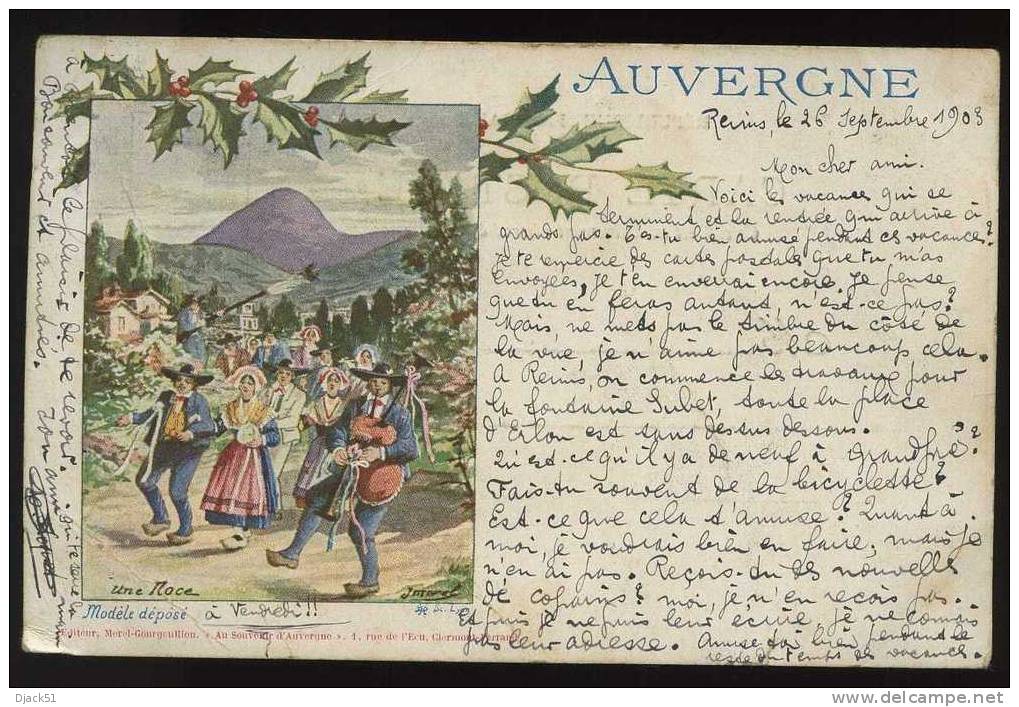 AUVERGNE
Reims, le 26 Septembre 1903
Mon cher ami.
Voici les vacances qui se
terminent et la rentrée qui arrive à
grands pas. T'es-tu bien amusé pendant ces vacances?
Je te remercie des cartes postales que tu m'as
envoyées, je t'en enverrai encore. Je pense
que tu en feras autant, n'est-ce pas?
Mais ne mets pas le timbre du côté de
la vue, je n'aime pas beaucoup cela.
A Reims, on commence les travaux pour
la fontaine Subet, toute la place
d'Erlon est sens dessus dessous.
Qu'est-ce qu'il y a de neuf à Grandpré?
Fais-tu souvent de la bicyclette?
Est-ce que cela t'amuse? Quant à
moi, je voudrais bien en faire, mais je
n'en ai pas. Reçois-tu des nouvelles
de copains? moi, je n'en reçois pas.
Et puis je ne puis leur écrire, je ne connais
pas leur adresse. Amuse-toi bien pendant le
reste du temps des vacances.
à bientôt le plaisir de te revoir.
Bonsoir et amitiés. Ton ami
Une Noce
Modèle déposé
à Vendredi!!
Editeur, Merel-Gourguillon, « Au Souvenir d'Auvergne », 1, rue de l'Ecu, Clermont-Ferrand
Djack51
delcampe.net